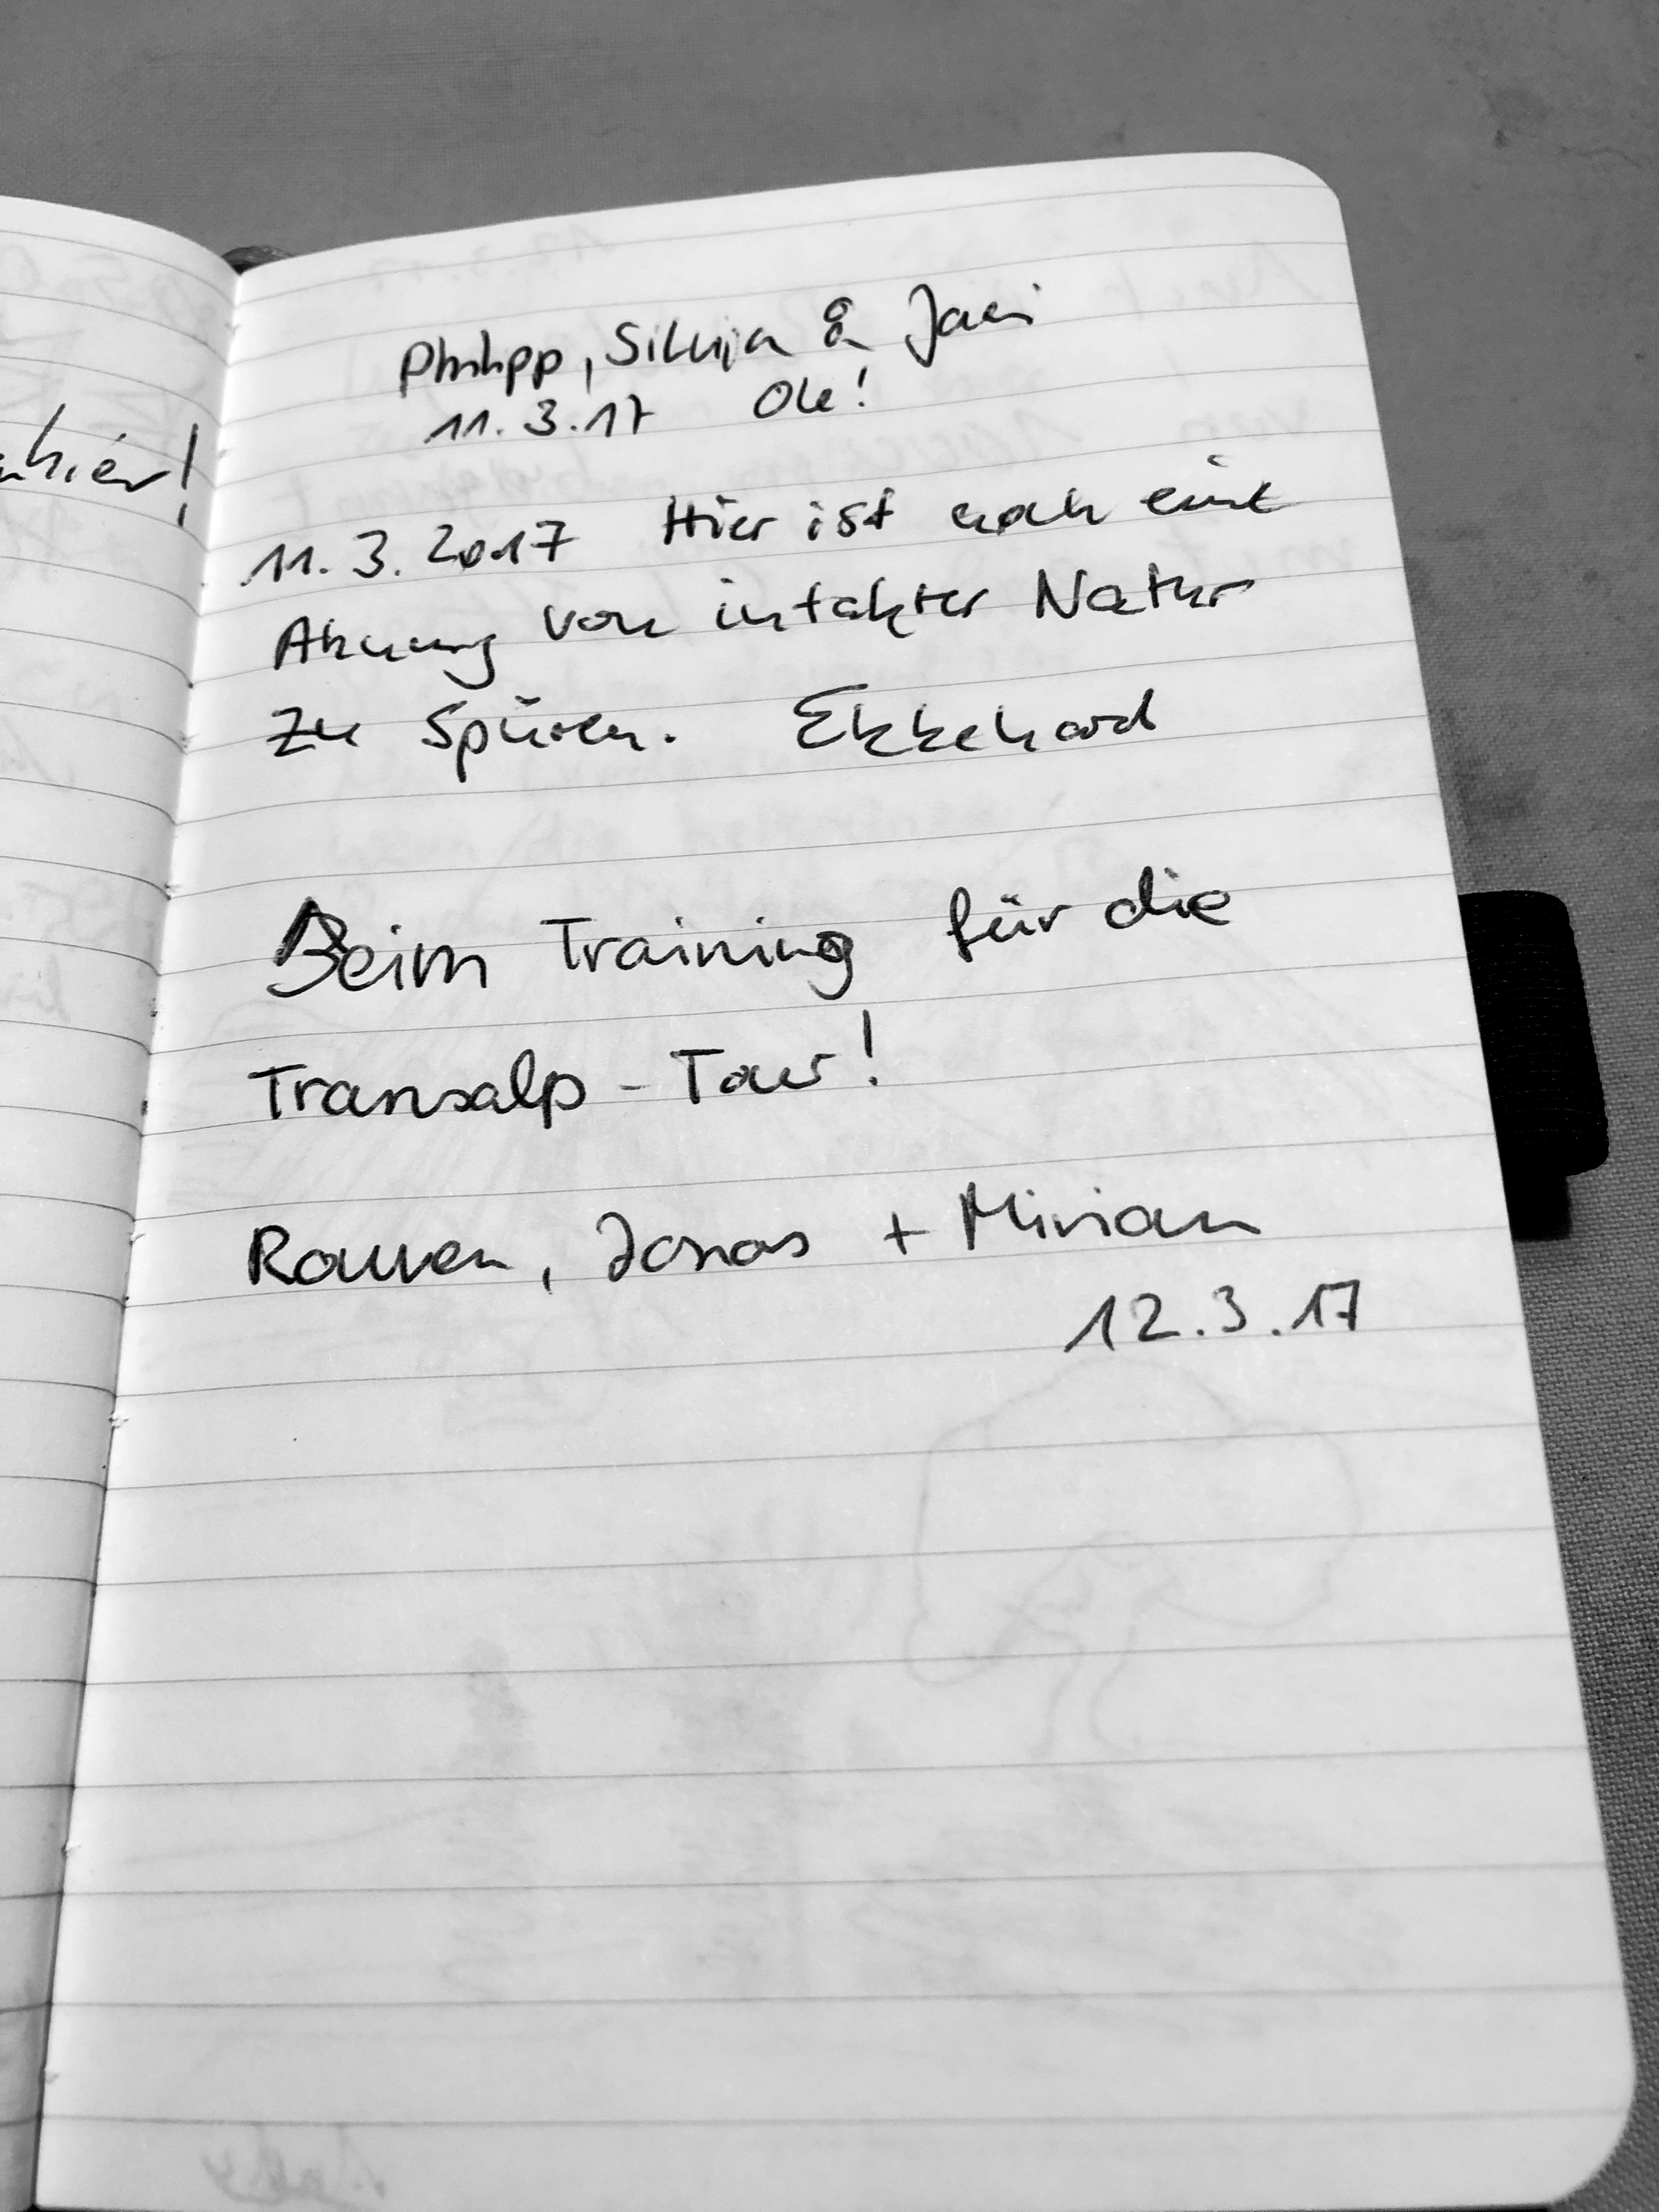 hier!
Philipp, Silvija & Jaci
11.3.17 Ole!
11.3.2017 Hier ist noch eine
Ahnung von intakter Natur
zu spüren. Ekkehard
Beim Training für die
Transalp-Tour!
Rouven, Jonas + Miriam
12.3.17